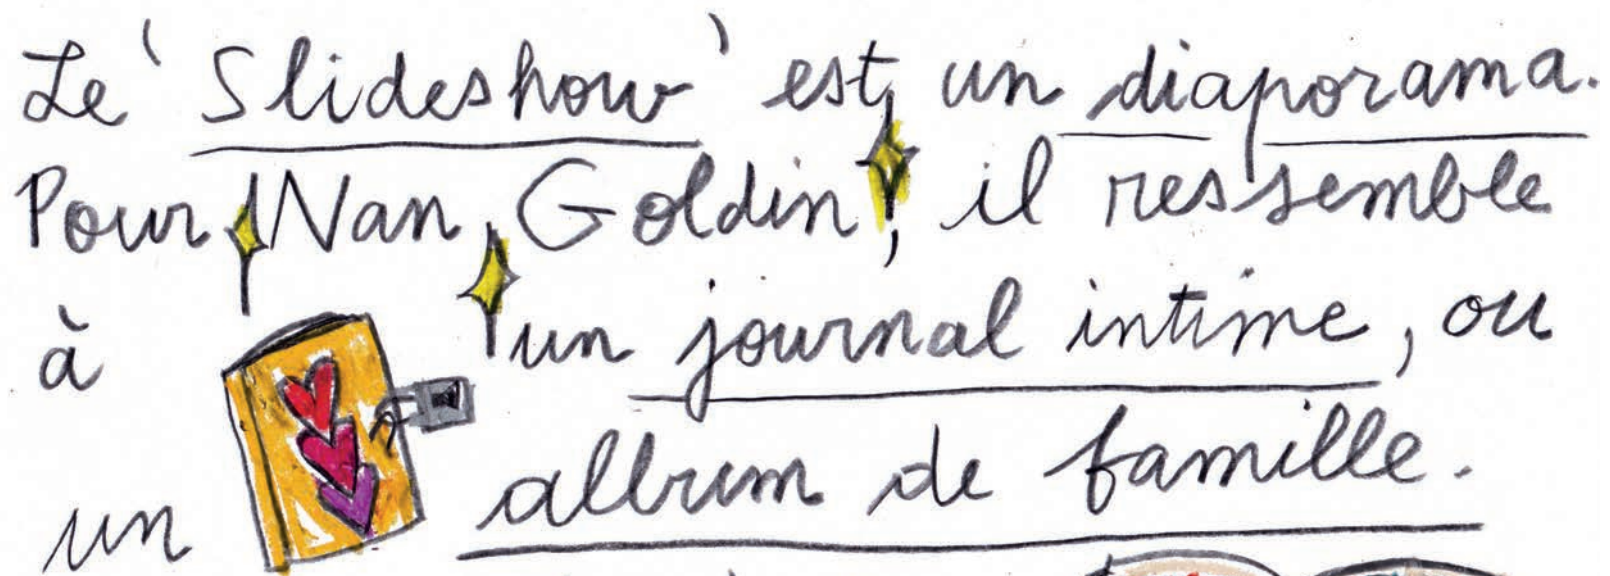 Le 'Slideshow' est un diaporama.
Pour Nan Goldin, il ressemble
à un journal intime, ou
un album de famille.